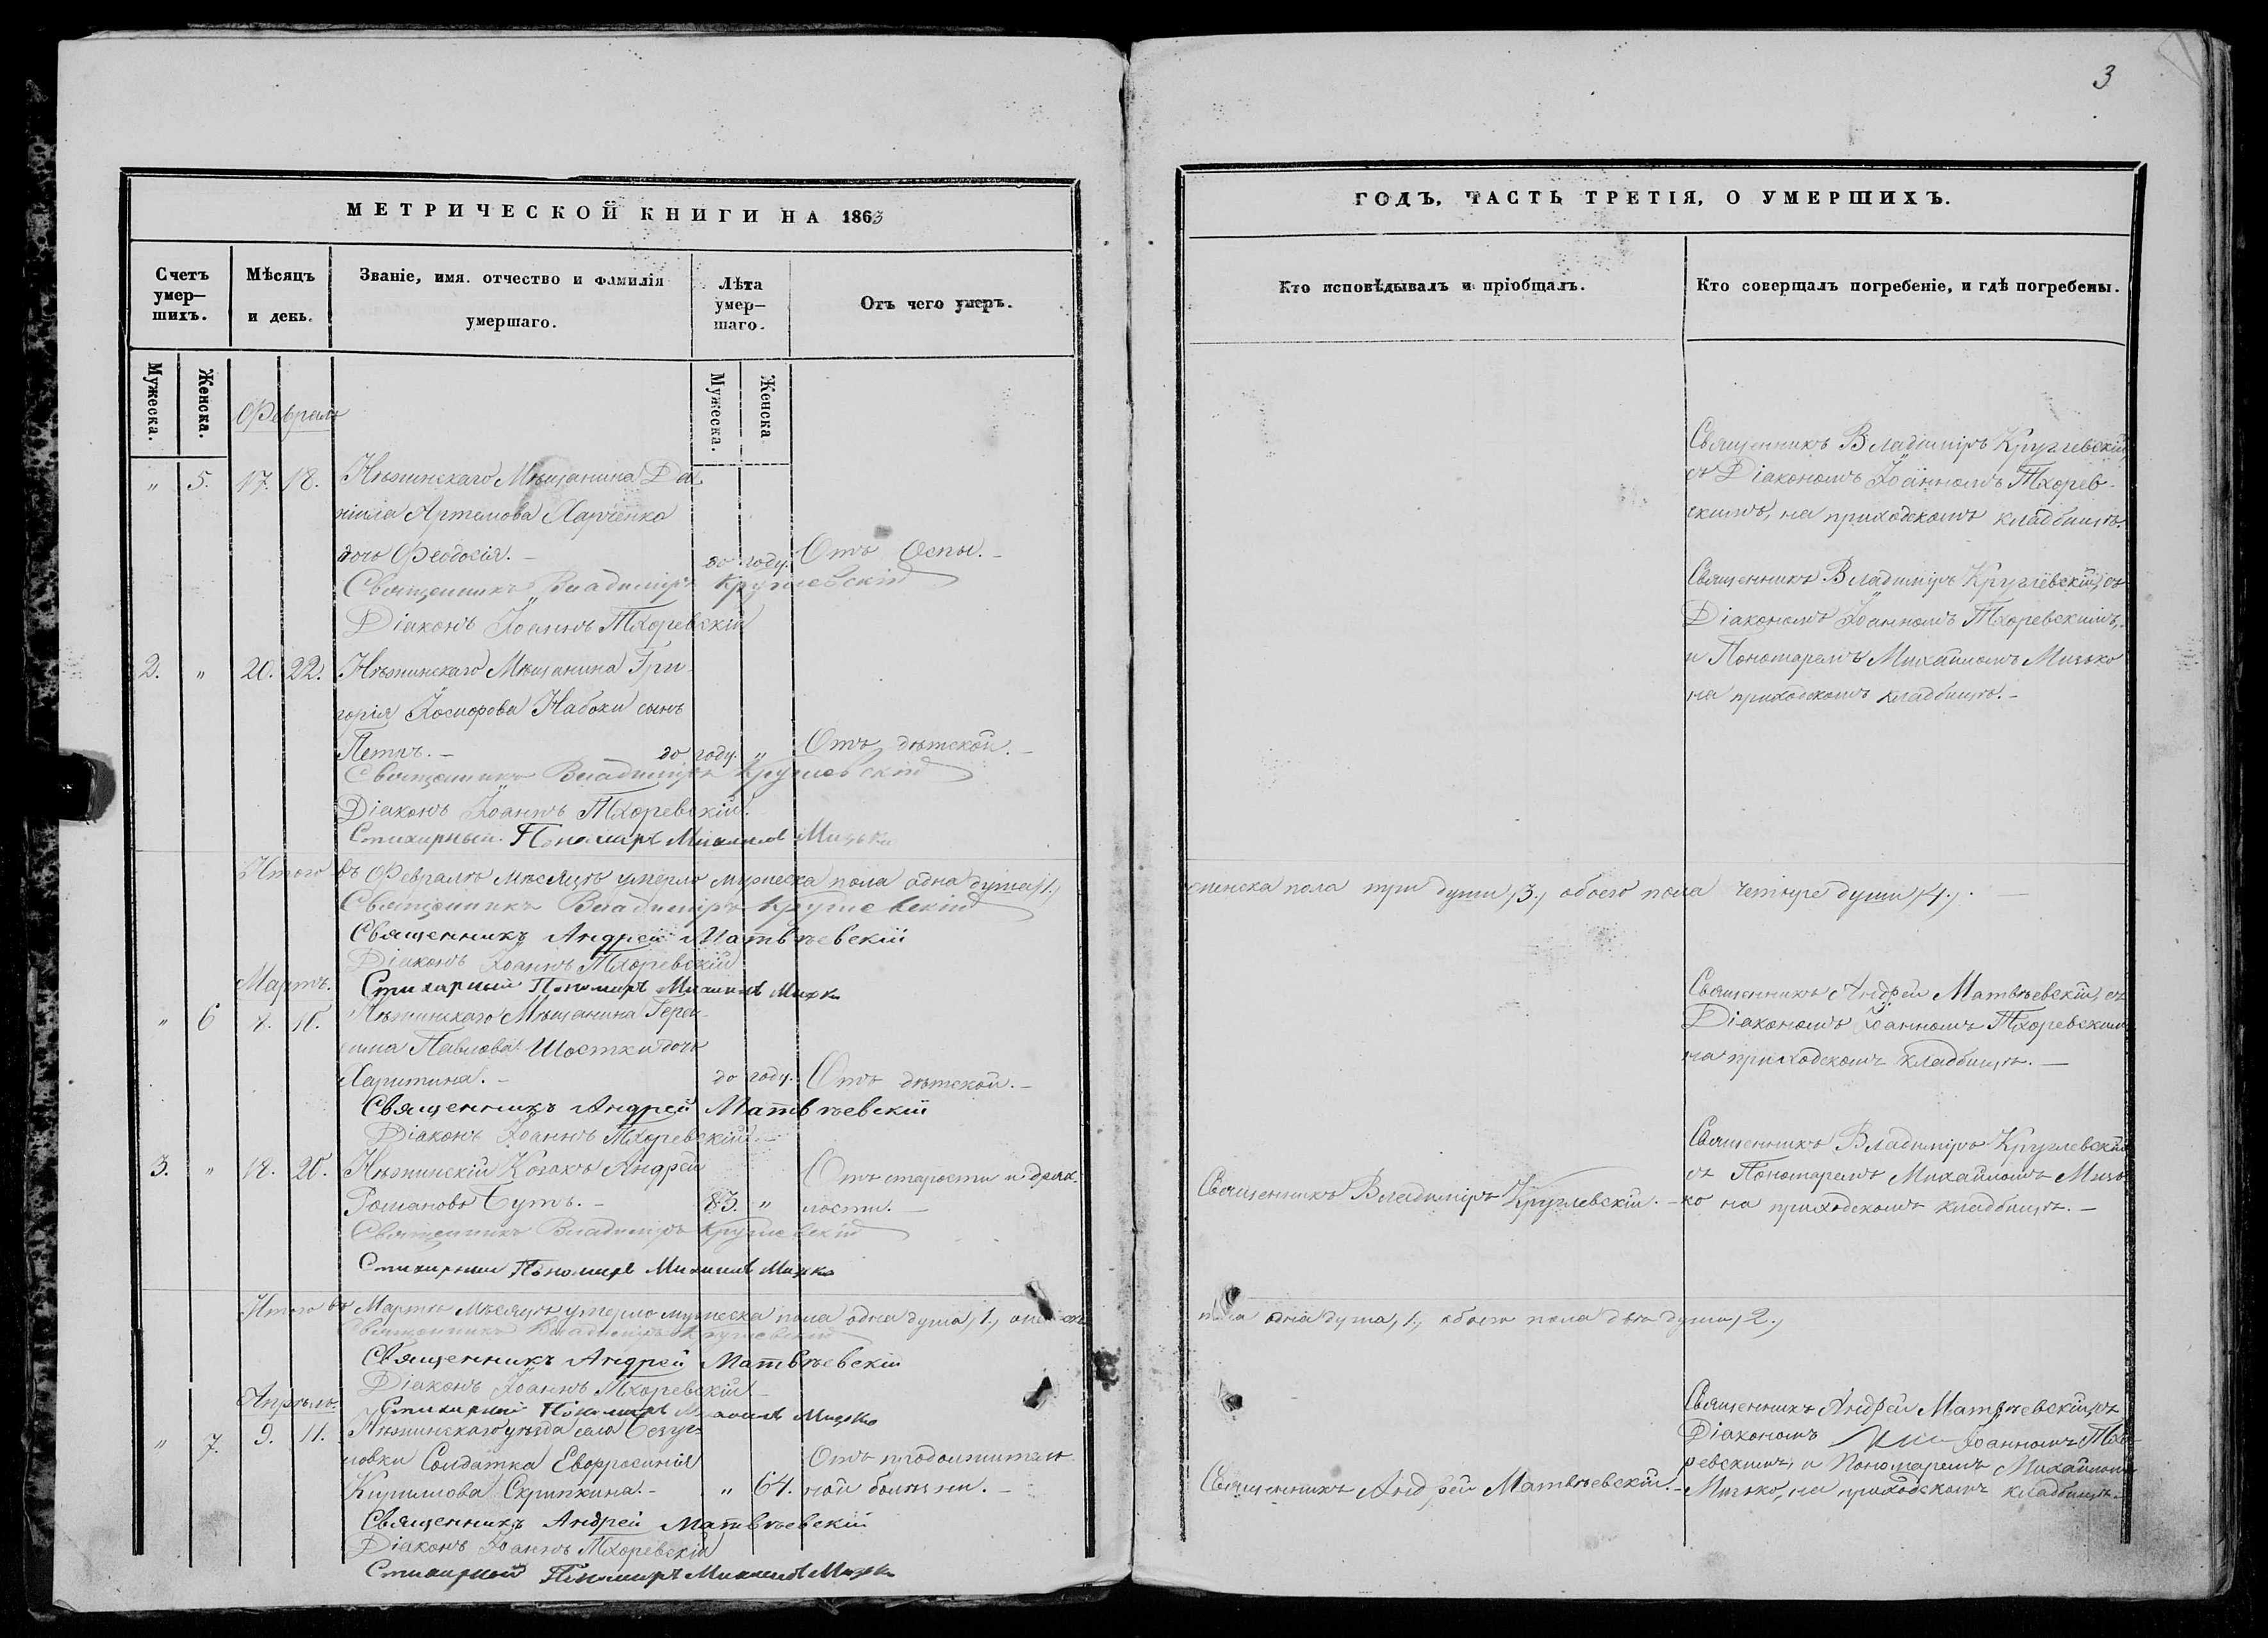 3
МЕТРИЧЕСКОЙ КНИГИ НА 1863
Счетъ умер-шихъ.
Мѣсяцъ и день.
Званіе, имя. отчество и фамилія умершаго.
Лѣта умер-шаго.
Отъ чего умеръ.
Мужеска.
Женска.
Мужеска.
Женска
Февраль
" 5. 17. 18. Нѣжинскаго Мѣщанина Да
ніила Артемова Харченко
дочь Феодосія. — до году. Отъ Оспы. —
Священникъ Владиміръ Круглевскій
Діаконъ Іоаннъ Тхоревскій
2. " 20. 22. Нѣжинскаго Мѣщанина Гри
горія Набоки сынъ
Петръ. — до году. " Отъ дѣтской. —
Священникъ Владиміръ Круглевскій
Діаконъ Іоаннъ Тхоревскій.
Стихарный Пономарь Михаилъ Мизько
Итого въ Февралѣ мѣсяцѣ умерло мужеска пола одна душа, 1,
Священникъ Владиміръ Круглевскій
Священникъ Андрей Матвѣевскій
Діаконъ Іоаннъ Тхоревскій
Мартъ. Стихарный Пономарь Михаилъ Мизько
" 6 Нѣжинскаго Мѣщанина Гера
сима Павлова Шостки дочь
Харитина. — до году. Отъ дѣтской. —
Священникъ Андрей Матвѣевскій
Діаконъ Іоаннъ Тхоревскій —
3. " 18. 20. Нѣжинскій Козакъ Андрей Отъ старости и дрях
Романовъ Бутъ. — 83. " лости. —
Священникъ Владиміръ Круглевскій
Стихарный Пономарь Михаилъ Мизько
Итого въ Мартѣ мѣсяцѣ умерло мужеска пола одна душа, 1,
Священникъ Владиміръ Круглевскій
Священникъ Андрей Матвѣевскій
Діаконъ Іоаннъ Тхоревскій —
Апрѣль. Стихарный Пономарь Михаилъ Мизько
" 7. 9. 11. Нѣжинскаго уѣзда села
ловки Солдатка Евфросинія Отъ продолжитель
Кирилова Скрипкина. — " 64. ной болѣзни. —
Священникъ Андрей Матвѣевскій
Діаконъ Іоаннъ Тхоревскій
Стихарный Пономарь Михаилъ Мизько
ГОДЪ, ЧАСТЬ ТРЕТІЯ, О УМЕРШИХЪ.
Кто исповѣдывалъ и пріобщалъ.
Кто совершалъ погребеніе, и гдѣ погребены.
Священникъ Владиміръ Круглевскій,
съ Діакономъ Іоанномъ Тхорев-
скимъ, на приходскомъ кладбищѣ.
Священникъ Владиміръ Круглевскій, съ
Діакономъ Іоанномъ Тхоревскимъ,
и Пономаремъ Михаиломъ Мизько
на приходскомъ кладбищѣ. —
женска пола три души, 3, обоего пола четыре души, 4, —
Священникъ Андрей Матвѣевскій, съ
Діакономъ Іоанномъ Тхоревскимъ
на приходскомъ кладбищѣ. —
Священникъ Владиміръ Круглевскій
съ Пономаремъ Михаиломъ Мизь
Священникъ Владиміръ Круглевскій. — ко на приходскомъ кладбищѣ. —
пола одна душа, 1, обоего пола двѣ души, 2,
Священникъ Андрей Матвѣевскій, съ
Діакономъ Іоанномъ Тхо
ревскимъ, и Пономаремъ Михаиломъ
Священникъ Андрей Матвѣевскій. — Мизько, на приходскомъ кладбищѣ. —